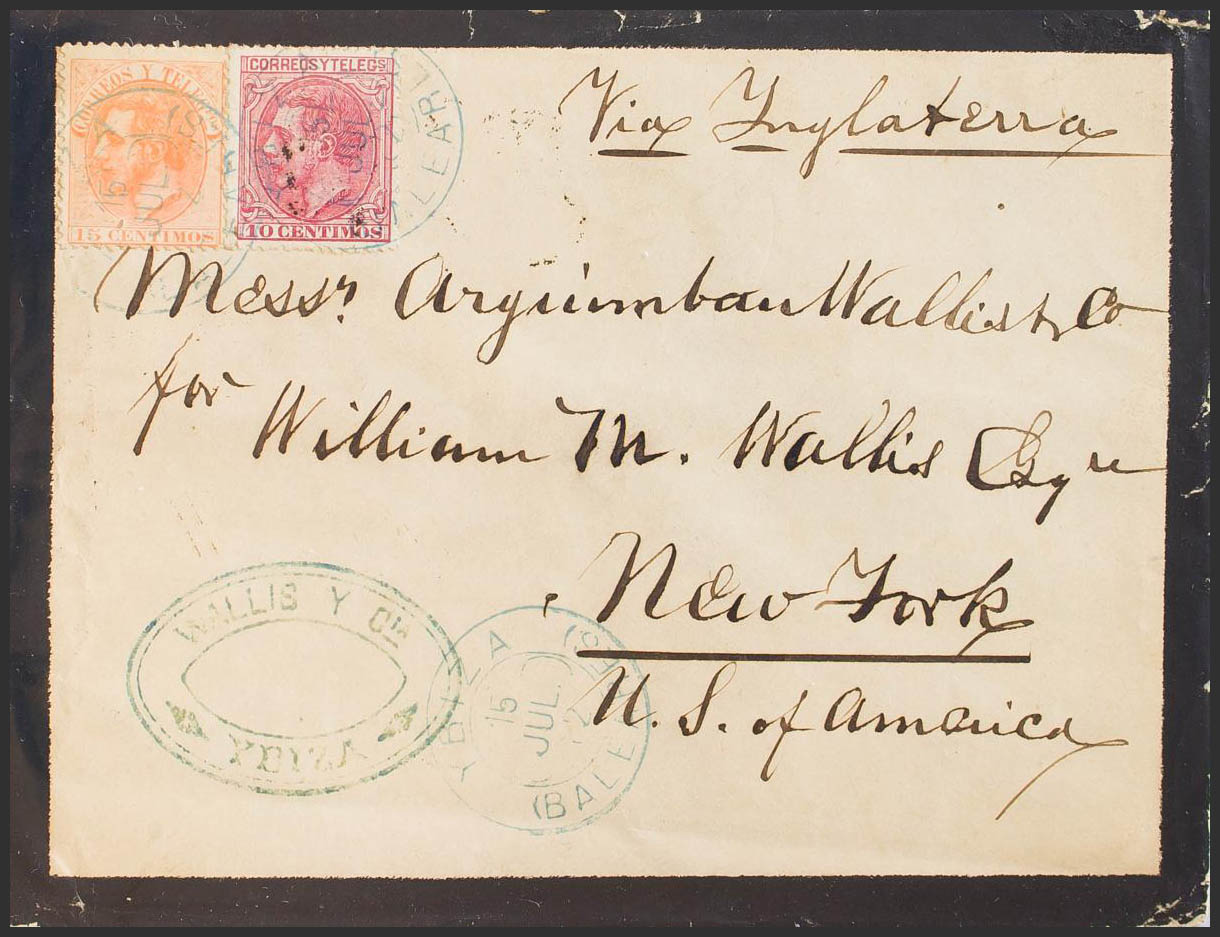 CORREOS Y TELE
15 CENTIMOS
CORREOS Y TELEGS
10 CENTIMOS
Via Inglaterra
Messrs Arguimbau Wallis & Co
for William M. Wallis Esqre
New York
U. S. of America
WALLIS Y CIA
YBIZA
YBIZA
15
JUL.
(BALEARES)